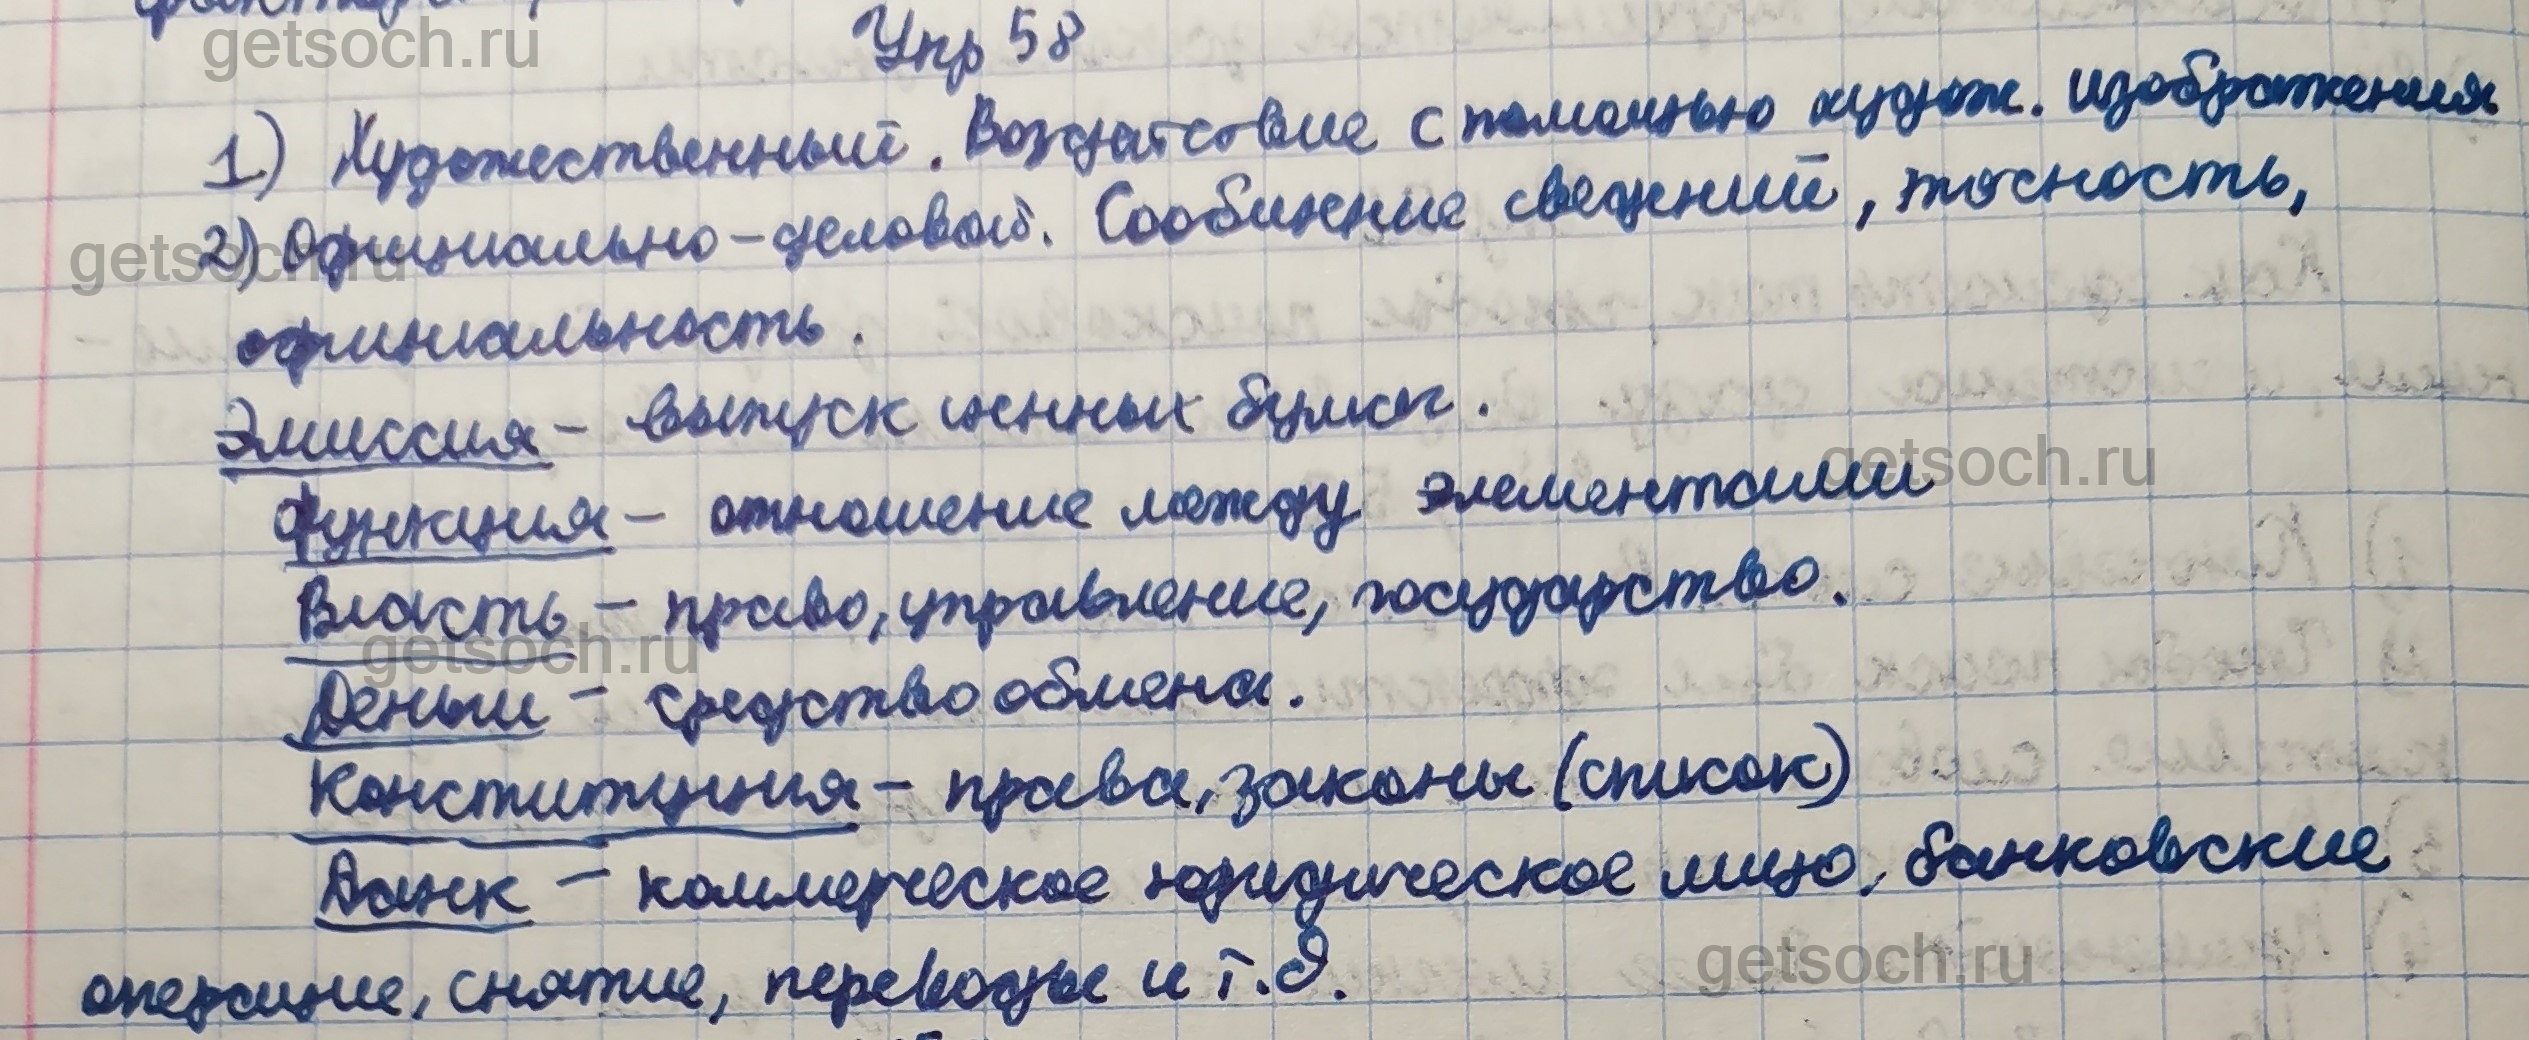 getsoch.ru
Упр 58
1) Художественный. Воздатсовие с помощью худож. изображения
getsoch.ru
2) Официально-деловой. Сообинние сведений, точность,
официальность.
Эмиссия - выпуск ценных бумаг.
getsoch.ru
функция - отношение между элементами
Власть - право, управление, государство.
getsoch.ru
Деньги - средство обмена.
Конституция - права, законы (список)
Банк - коммерческое юридическое лицо, банковские
операцие, снятие, переводы и т.д.
getsoch.ru